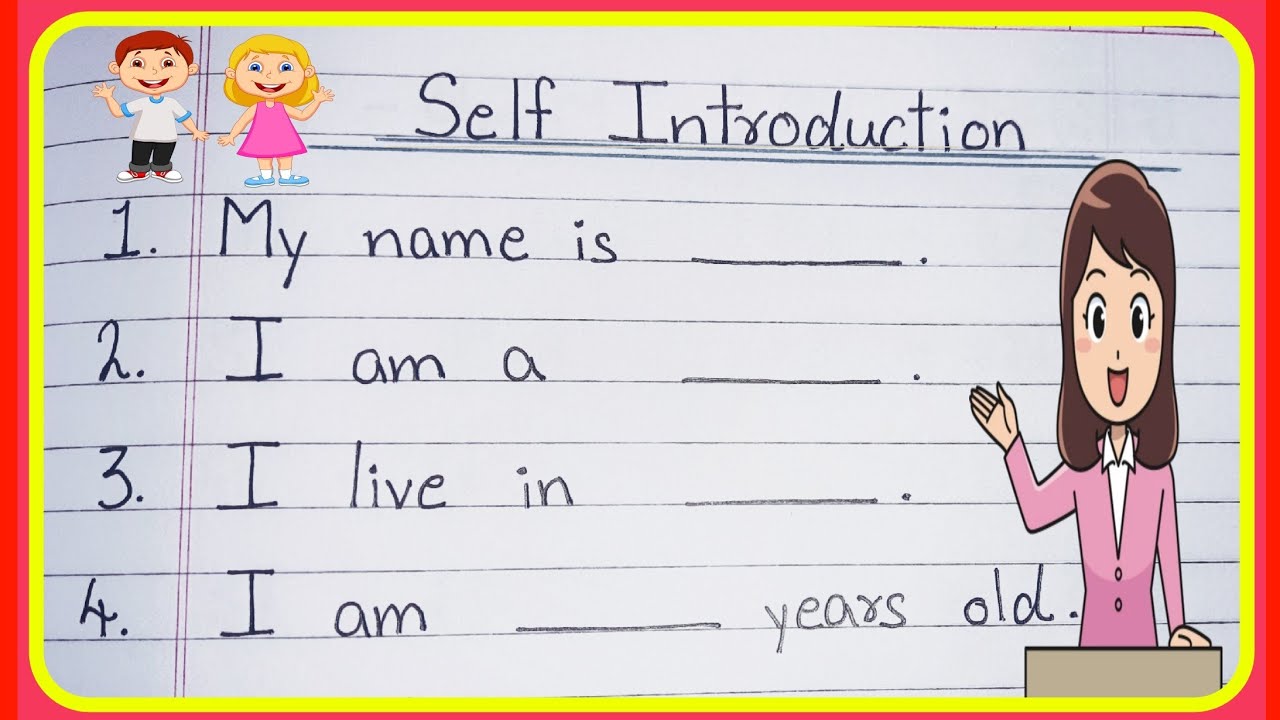 Self Introduction
1. My name is ________.
2. I am a ________.
3. I live in ________.
4. I am ________ years old.